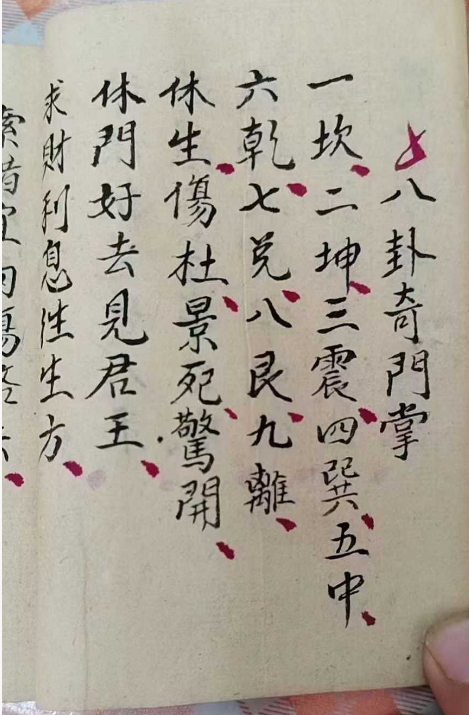 八卦奇門掌
一坎二坤三震四巽五中
六乾七兌八艮九離
休生傷杜景死驚開
休門好去見君王
求財利息往生方
索